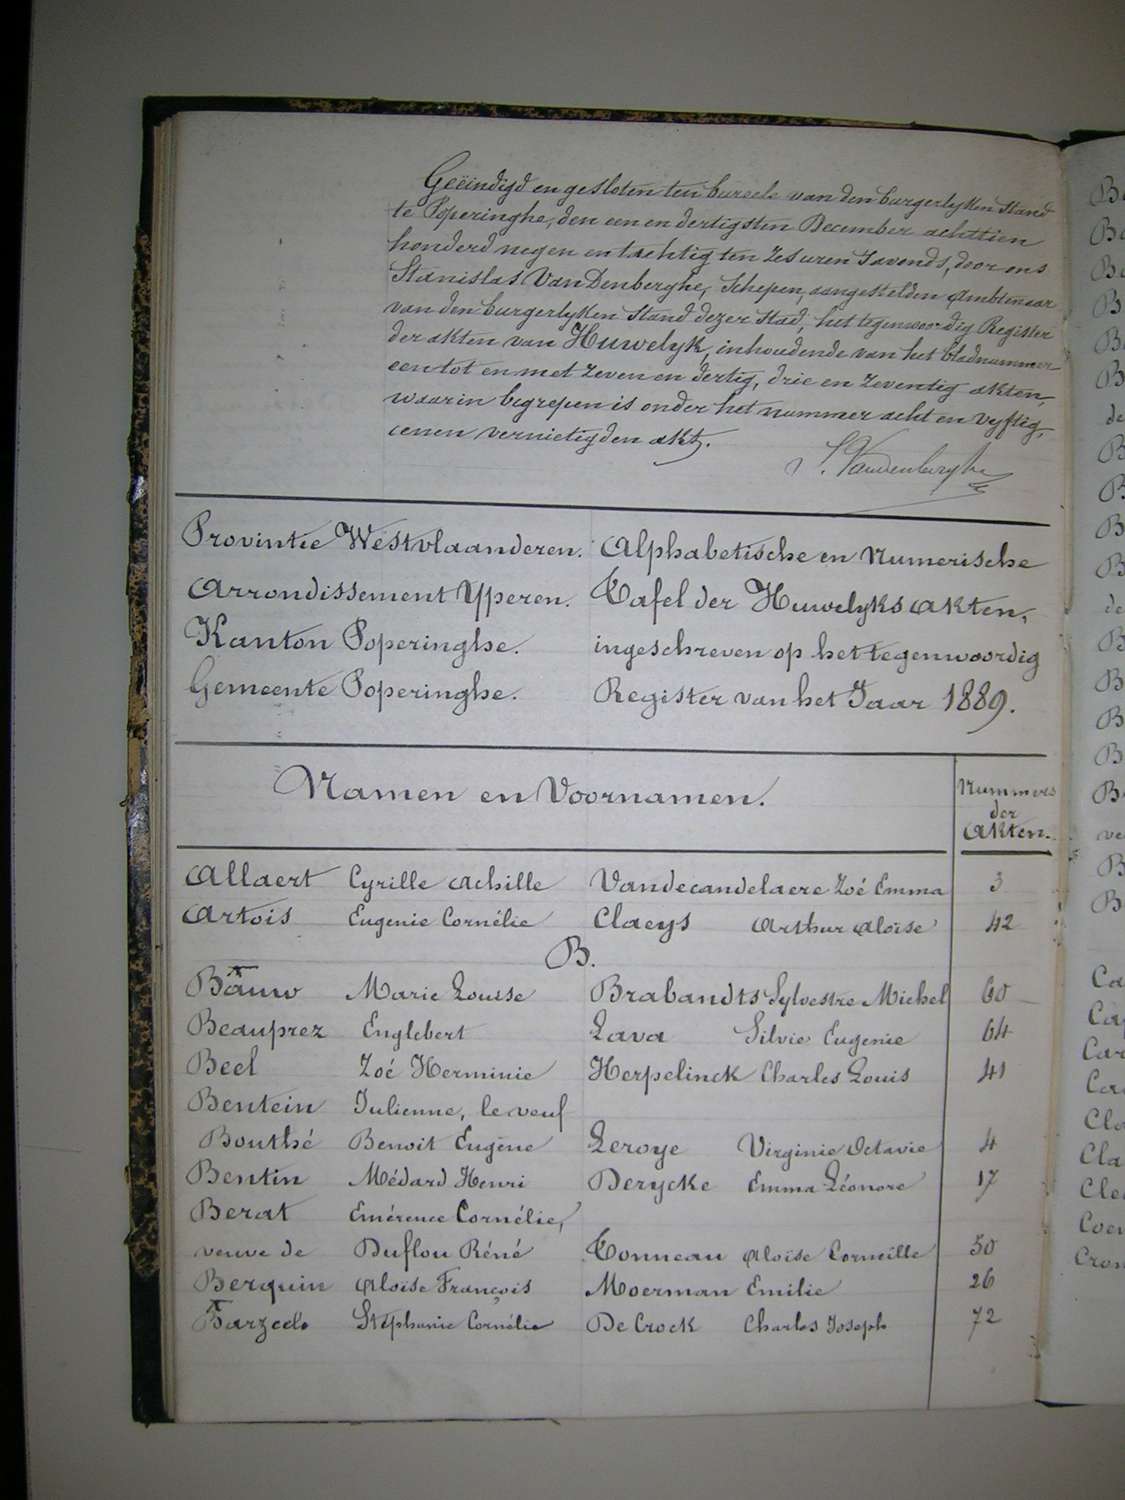 Geëindigd en gesloten ten bureele van den burgerlyken Stand
te Poperinghe, den een en dertigsten December achttien
honderd negen en tachtig ten zes uren 's avonds, door ons
Stanislas VanDenberghe, Schepen, aangestelden Ambtenaar
van den burgerlyken Stand dezer Stad, het tegenwoordig Register
der akten van Huwelyk, inhoudende van het bladnummer
een tot en met zeven en dertig, drie en zeventig akten,
waarin begrepen is onder het nummer acht en vyftig,
eenen vernietigden akt.
S. Vandenberghe
Provintie Westvlaanderen. Alphabetische en Numerische
Arrondissement Yperen. Tafel der Huwelyks akten,
Kanton Poperinghe. ingeschreven op het tegenwoordig
Gemeente Poperinghe. Register van het Jaar 1889.
Namen en Voornamen. Nummers
der
Akten.
Allaert Cyrille Achille Vandecandelaere Zoé Emma 3
Artois Eugenie Cornélie Claeys Arthur Aloïse 42
B.
Bauw Marie Louise Brabandts Sylvestre Michel 60
Beauprez Englebert Lava Silvie Eugenie 64
Beel Zoé Herminie Herpelinck Charles Louis 41
Bentein Julienne, le veuf
Bouthé Benoit Eugène Leroye Virginie Octavie 4
Bentin Médard Henri Derycke Emma Léonore 17
Berat Emérence Cornélie,
veuve de Duflou Réné Tonneau Aloïse Corneille 50
Berquin Aloïse François Moerman Emilie 26
Barzeele Stéphanie Cornélie De Crock Charles Joseph 72